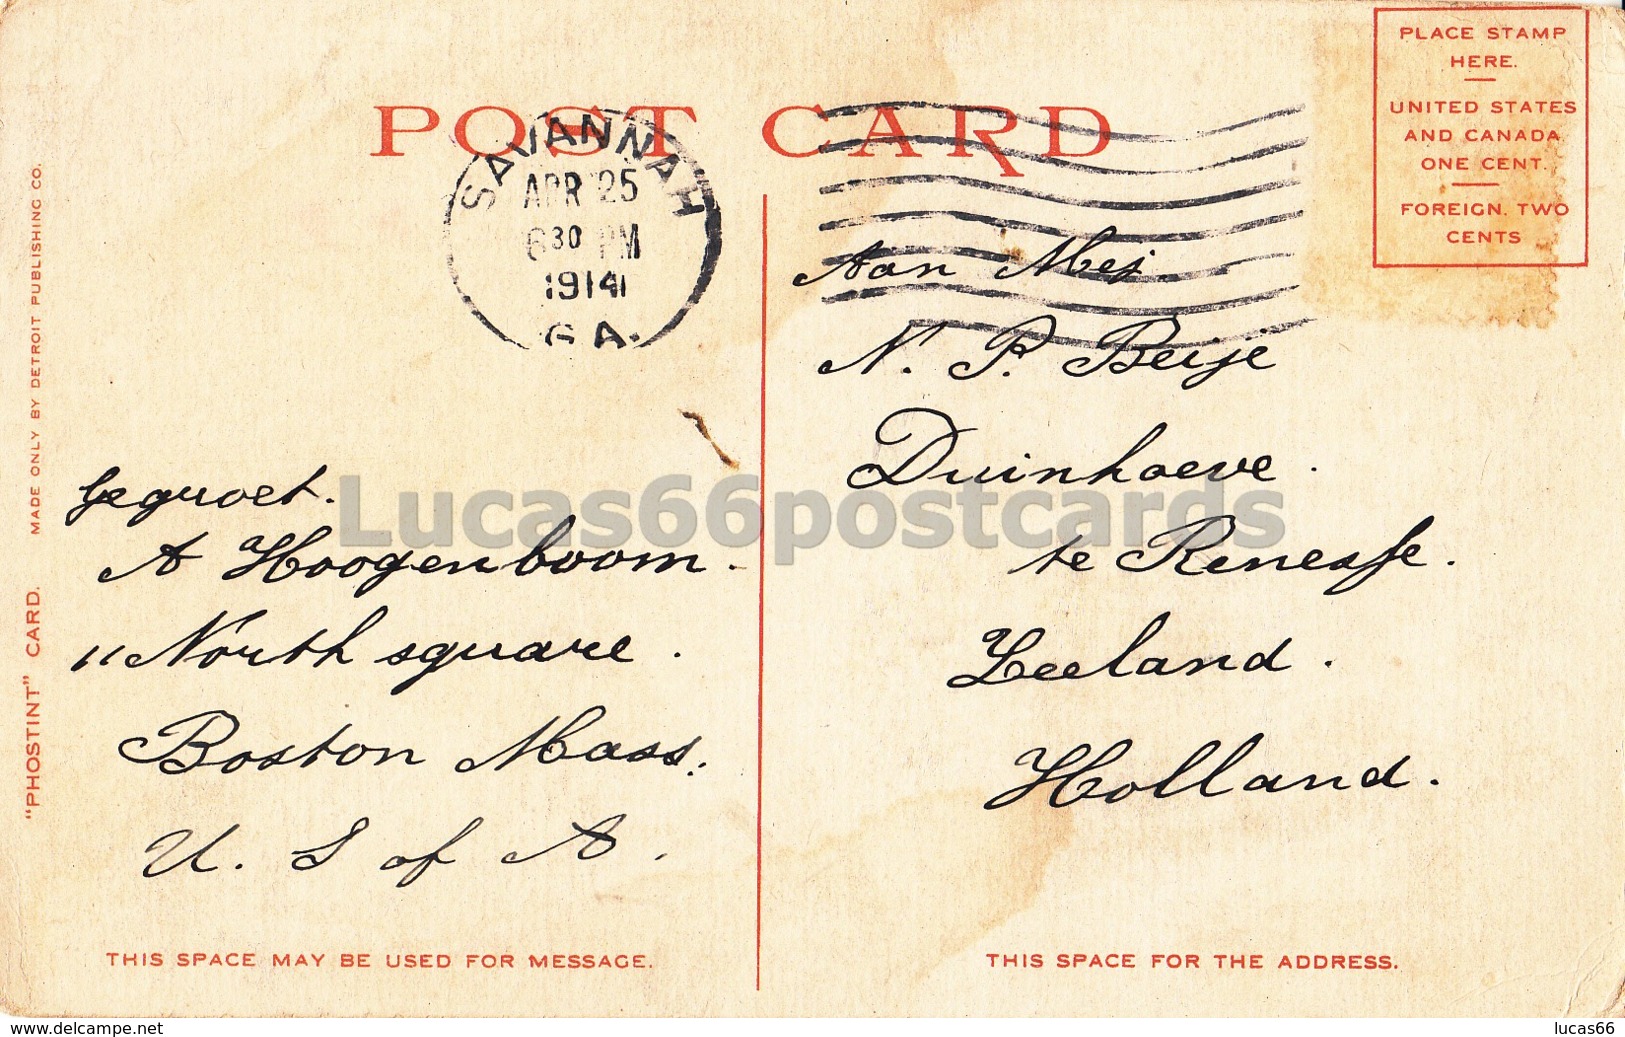 POST CARD
PLACE STAMP
HERE.
UNITED STATES
AND CANADA
ONE CENT.
FOREIGN. TWO
CENTS
SAVANNAH
APR 25
630 PM
1914
GA.
MADE ONLY BY DETROIT PUBLISHING CO.
"PHOSTINT" CARD.
Gegroet.
A Hoogenboom.
11 North square.
Boston Mass.
U. S of A.
THIS SPACE MAY BE USED FOR MESSAGE.
Aan Mej.
N. P. Beije
Duinhoeve.
te Renesse.
Zeeland.
Holland.
THIS SPACE FOR THE ADDRESS.
Lucas66postcards
www.delcampe.net
lucas66